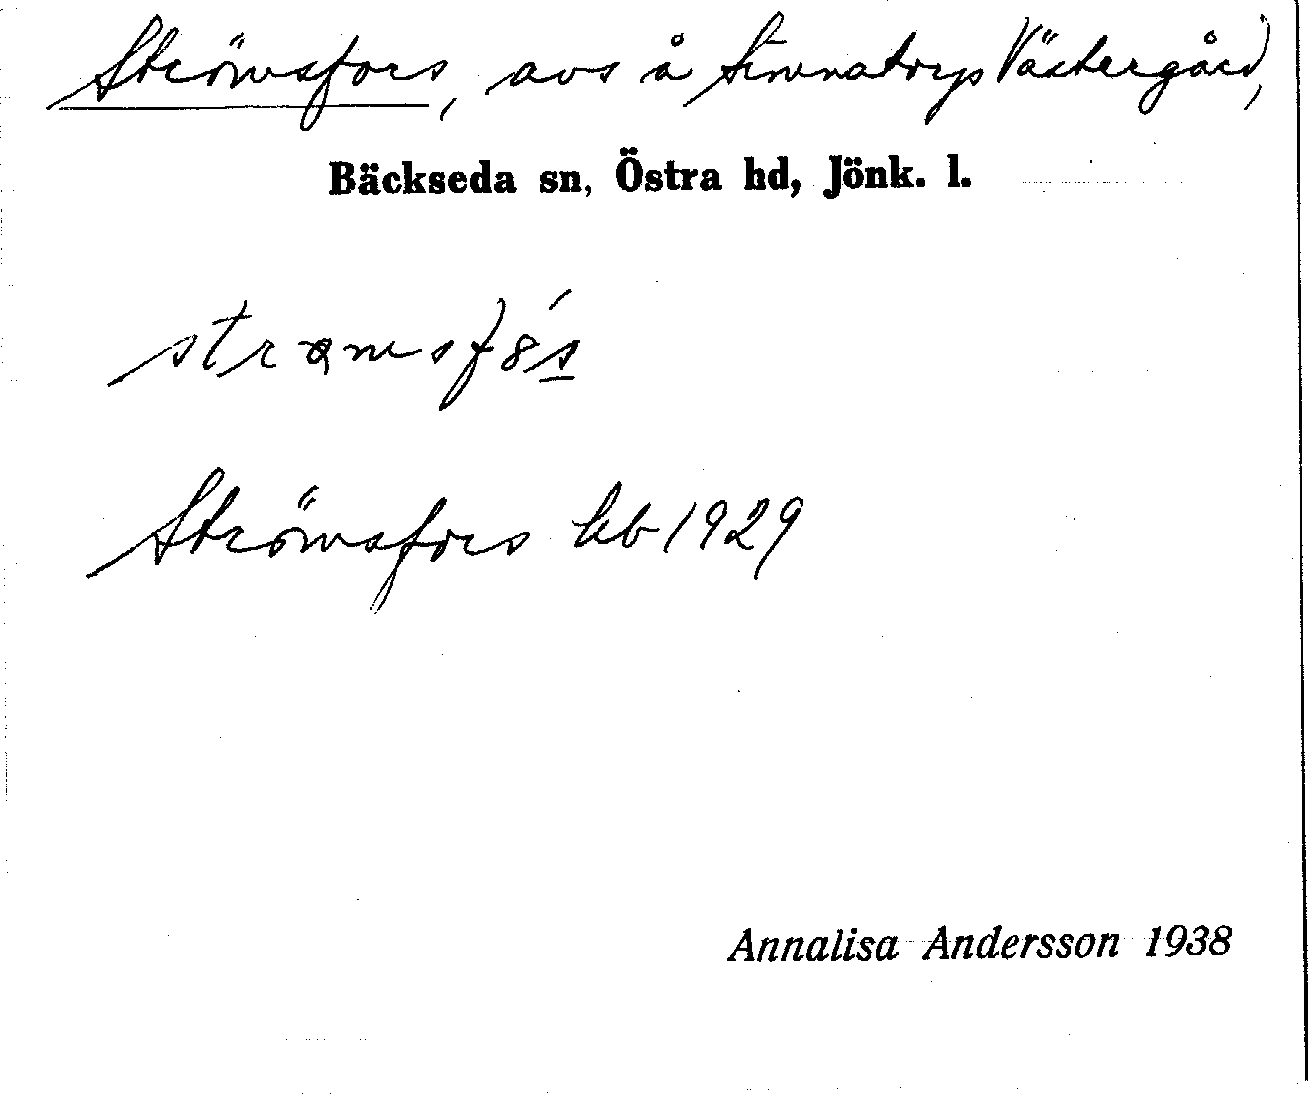 Strömsfors, avs å Simnatorp Västergård,
Bäckseda sn, Östra hd, Jönk. l.
Strömsfors kb 1929
Annalisa Andersson 1938